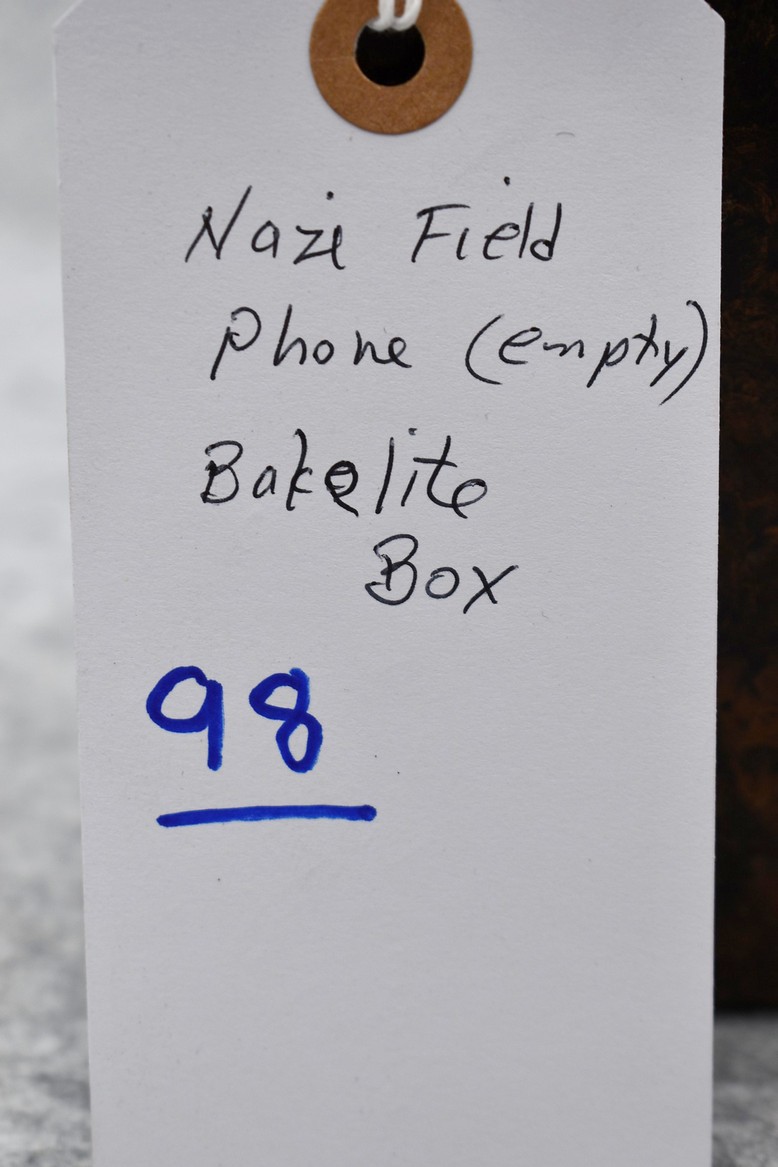 Nazi Field
Phone (empty)
Bakelite
Box
98